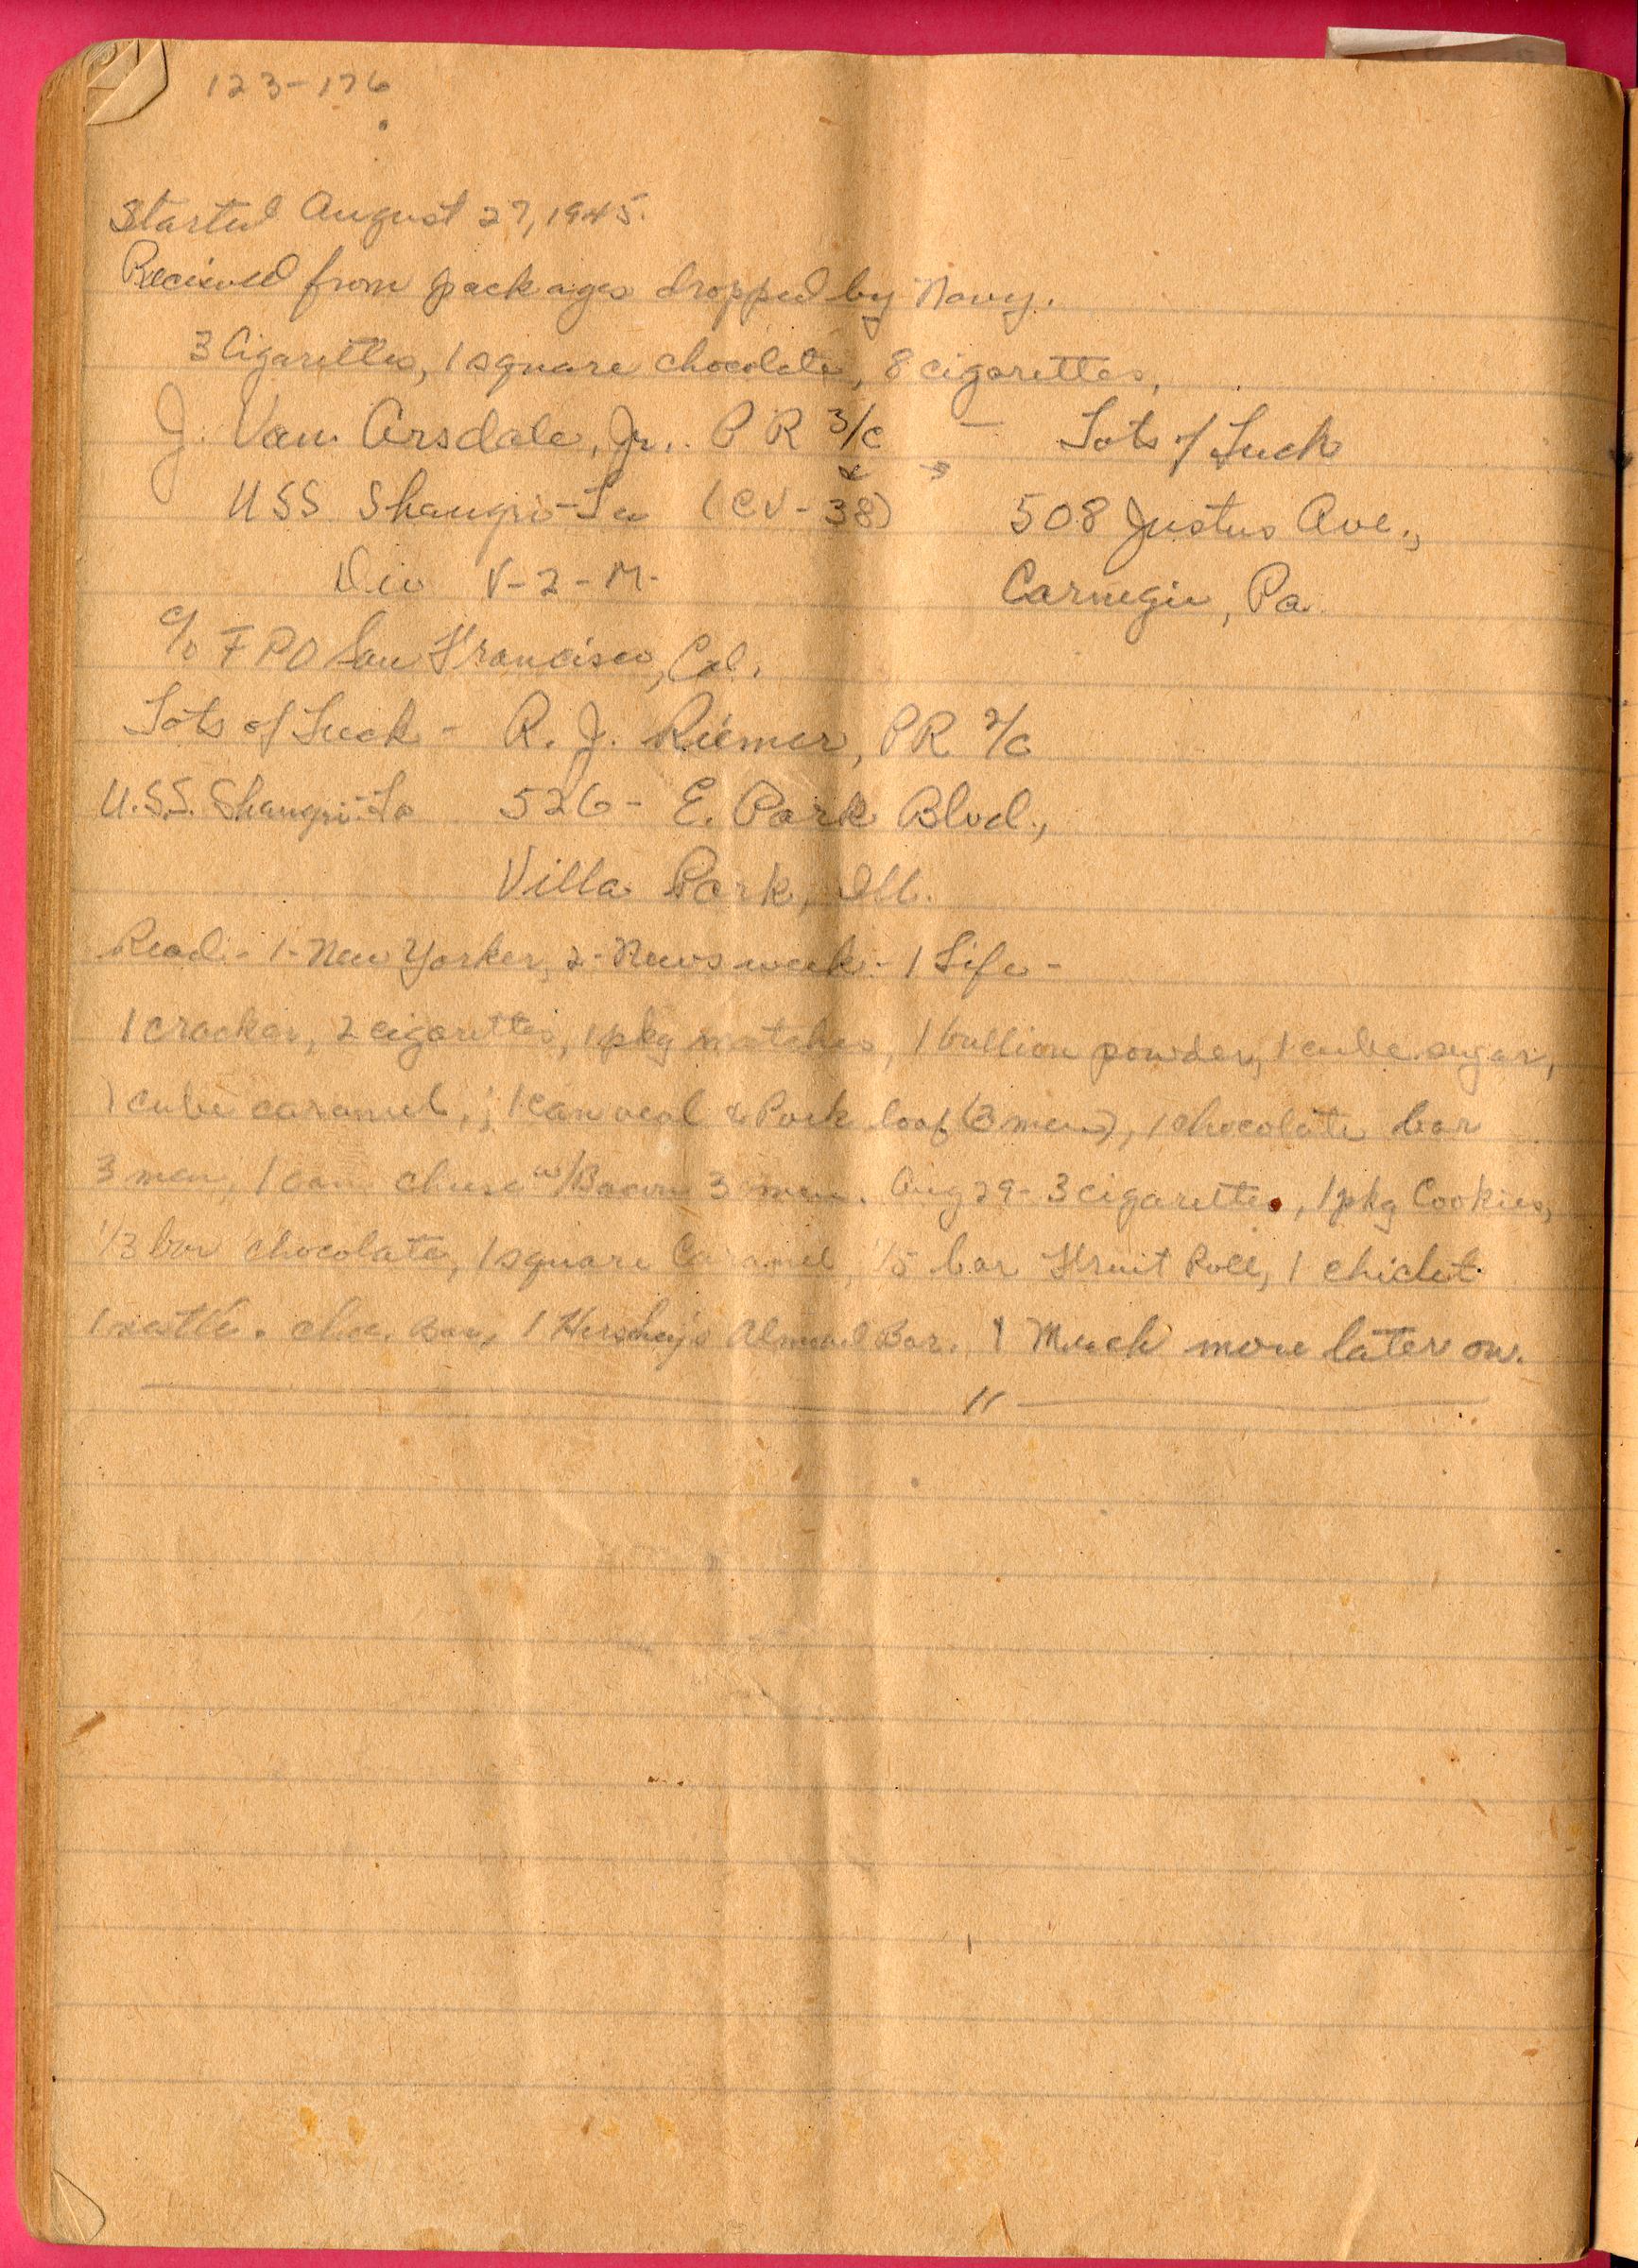 123-176
Started August 27, 1945.
Recieved from packages dropped by Navy.
3 Cigarettes, 1 square chocolate, 8 cigarettes,
J. Van Arsdale, Jr., P R 3/c - Lots of Luck
USS Shangri-La (CV-38) 508 Justus Ave.,
Div V-2-M- Carnegie, Pa.
c/o F P O San Francisco, Cal.
Lots of Luck - R. J. Riemer, PR 2/c
U.S.S. Shangri-La 526- E. Park Blvd.,
Villa Park, Ill.
Read - 1-New Yorker, 2-Newsweek - 1 Life -
1 cracker, 2 cigarettes, 1 pkg matches, 1 bullion powder, 1 cube sugar,
1 cube caramel, ; 1 can veal & Pork loaf (3 men), 1 chocolate bar
3 men, 1 can cheese w/Bacon 3 men. Aug 29- 3 cigarettes, 1 pkg Cookies,
1/3 bar chocolate, 1 square Caramel, 1/5 bar Fruit Roll, 1 chiclet
1 nestle. choc. Bar, 1 Hershey's Almond Bar. Much more later on.